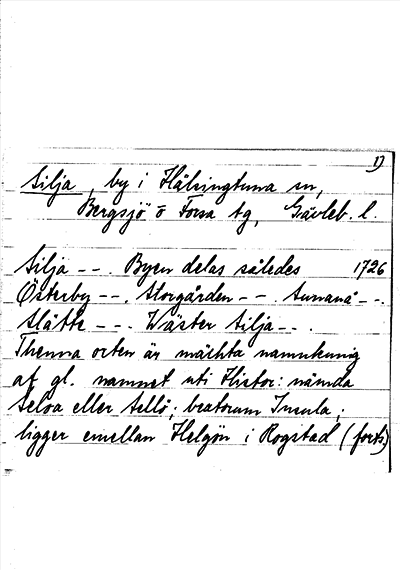 1)
Silja, by i Hälsingtuna sn,
Bergsjö o Forsa tg, Gävleb. l.
Silja - - . Byen delas således 1726
Österby - - , Storgården - - . Sunanå - - .
Slätte - - - . Wäster Silja - - .
Thenna orten är mächta namnkunnig
af gl. namnet uti Histor: nämda
Seloa eller Sellö; beatorum Insula;
ligger emellan Helgön i Rogstad (forts)